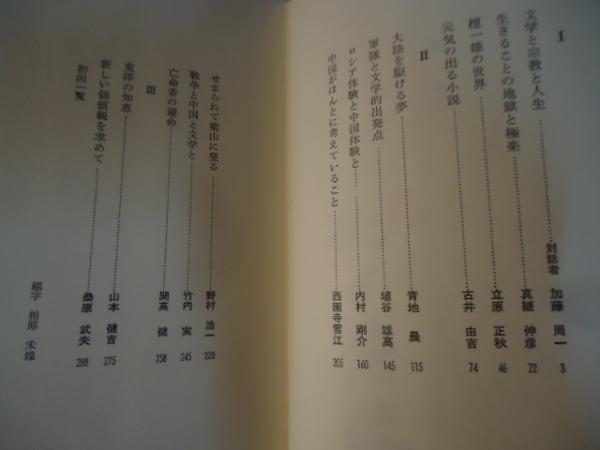 I
対話者
文学と宗教と人生 加藤 周一 3
生きることの地獄と極楽 真継 伸彦 22
檀一雄の世界 立原 正秋 46
元気の出る小説 古井 由吉 74
II
大陸を駆ける夢 青地 晨 115
軍隊と文学的出発点 埴谷 雄高 145
ロシア体験と中国体験と 内村 剛介 160
中国がほんとに考えていること 西園寺雪江 205
せまられて梁山に登る 野村 浩一 220
戦争と中国と文学と 竹内 実 245
亡命者の運命 開高 健 258
III
東洋の知恵 山本 健吉 275
新しい価値観を求めて 桑原 武夫 288
初出一覧
題字 柏原